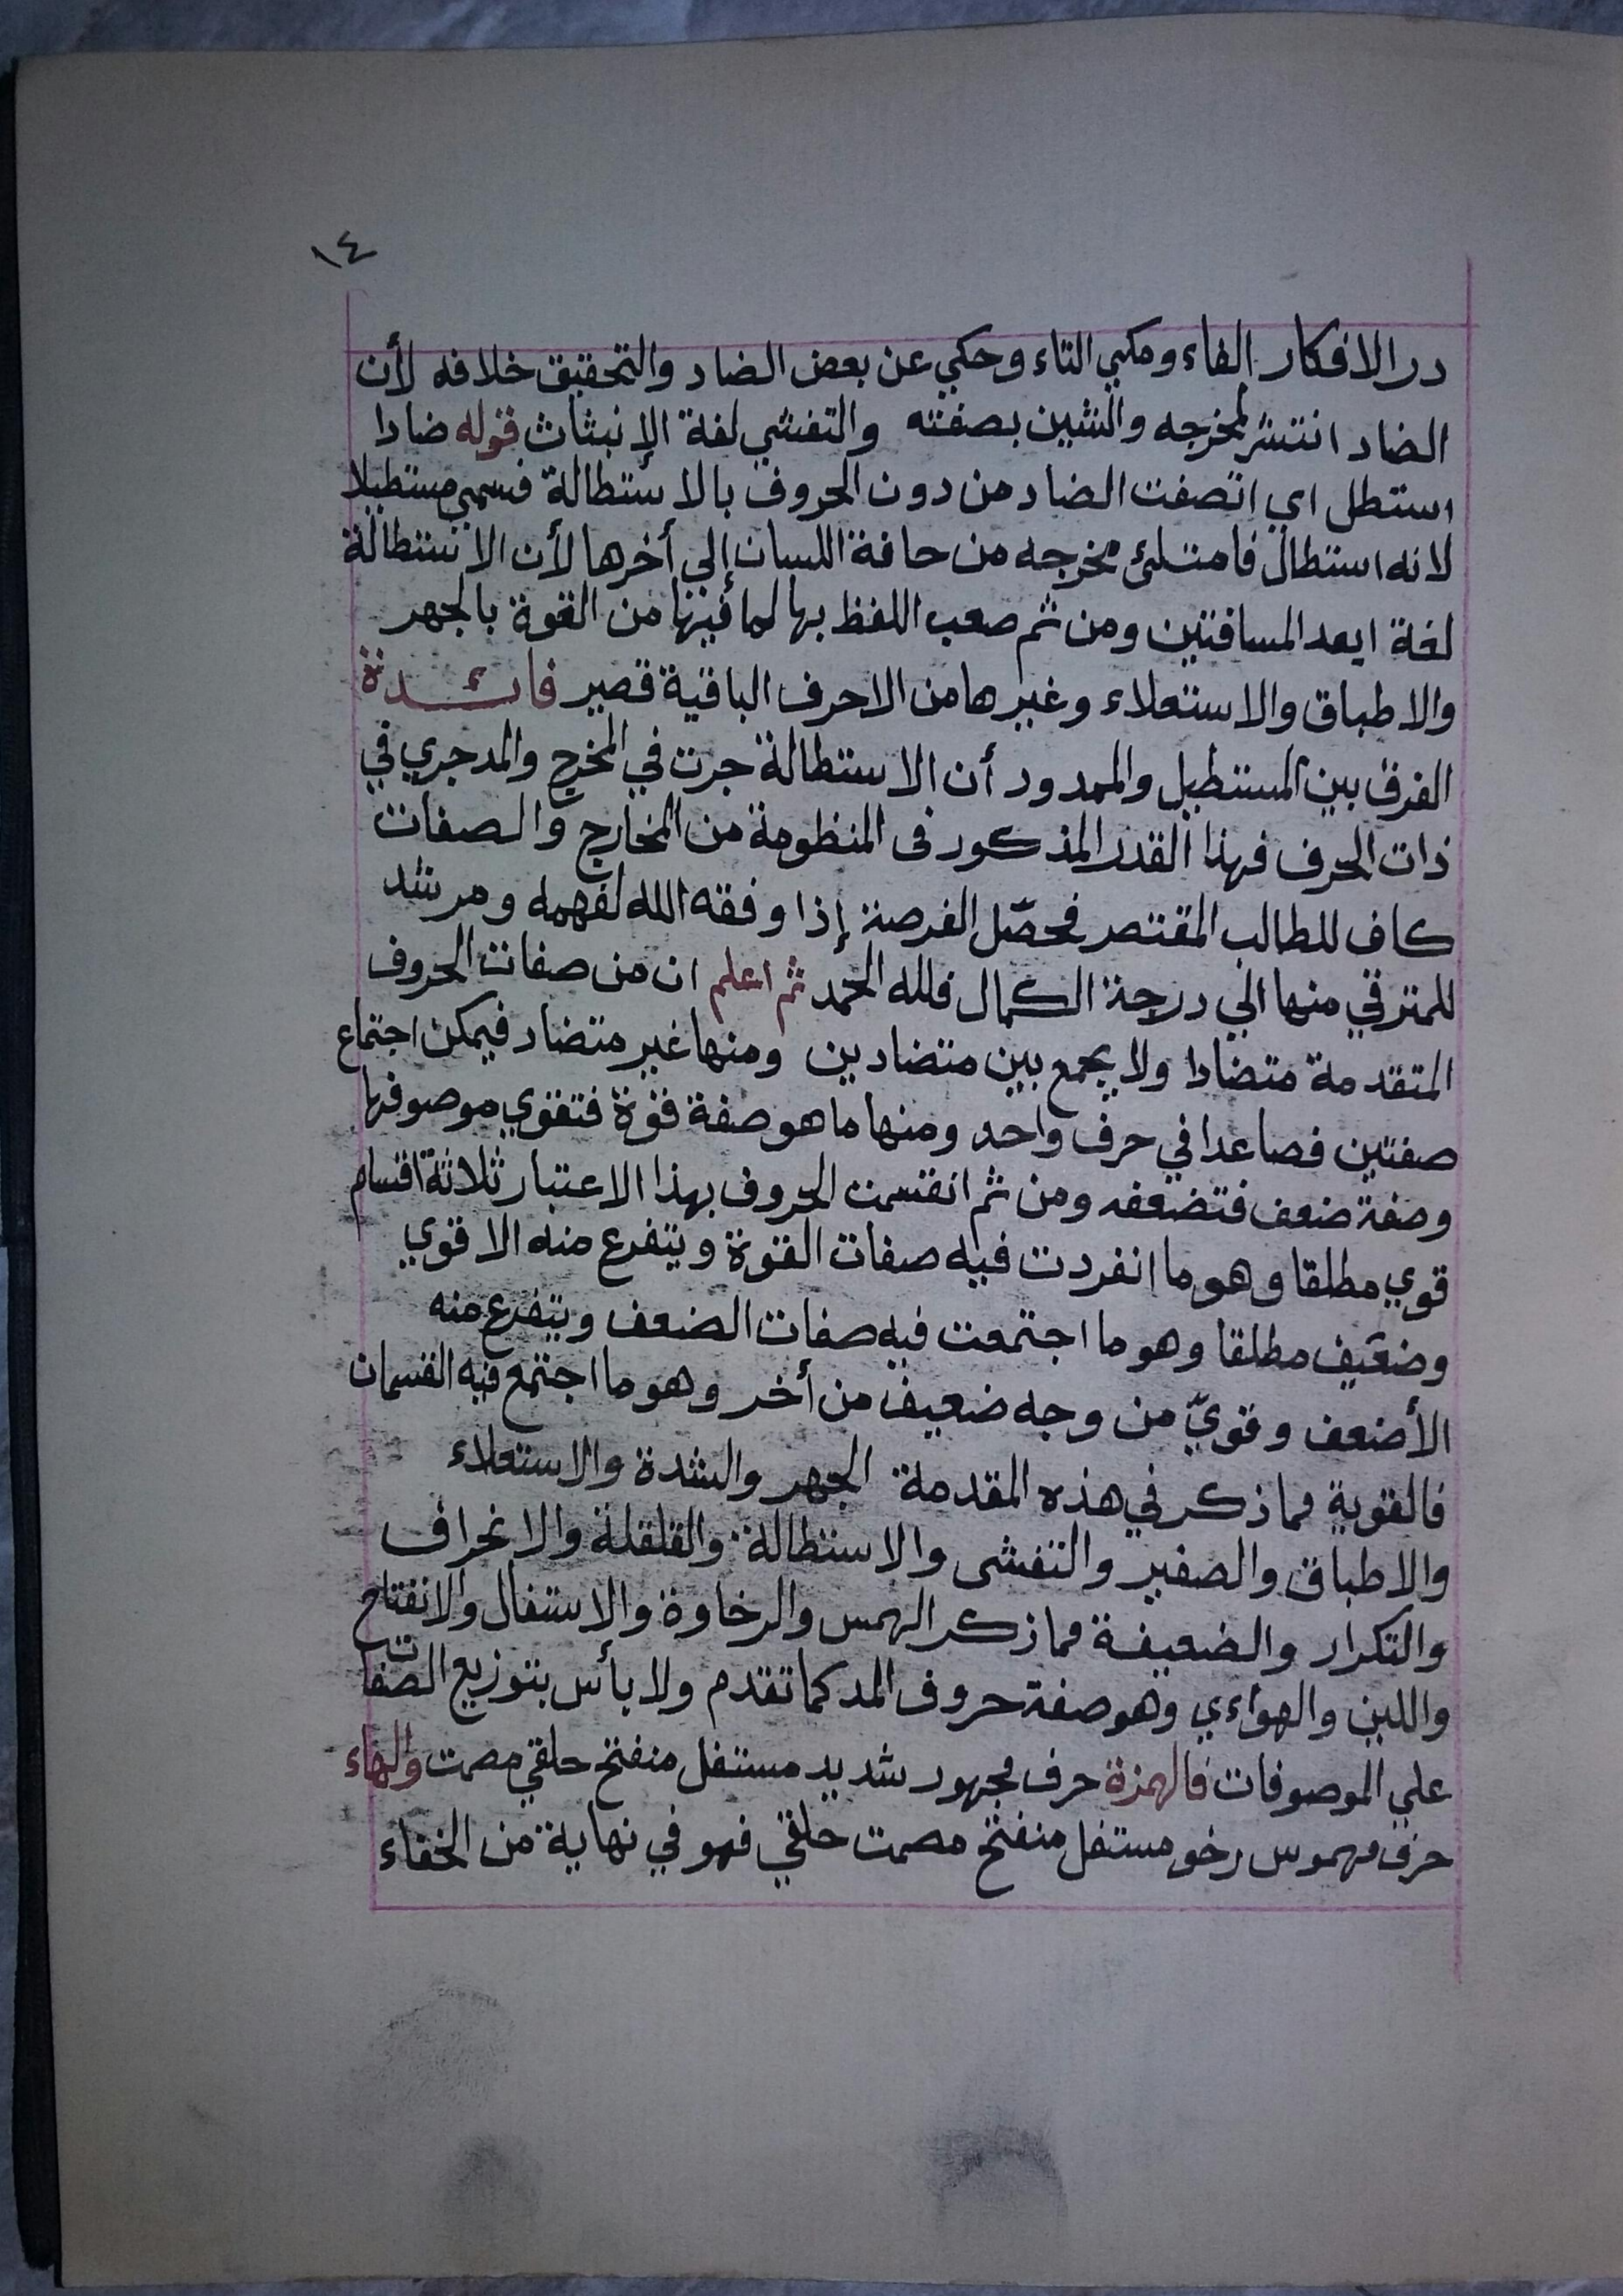 ١٤
در الافكار الفاء ومكي الثاء وحكي عن بعض الضاد والتحقيق خلافه لأن
الضاد انتشر لمخرجه والشين بصفته والتفشي لغة الإنبثاث قوله ضادا
استطل اي اتصفت الضاد من دون الحروف بالاستطالة فسمي مستطيلا
لانه استطال فامتلئ مخرجه من حافة اللسان إلي أخرها لأن الاستطالة
لغة ابعد المسافتين ومن ثم صعب اللفظ بها لما فيها من القوة بالجهر
والاطباق والاستعلاء وغيرها من الاحرف الباقية قصير فائدة
الفرق بين المستطيل والممدود أن الاستطالة جرت في المخرج والمد جري في
ذات الحرف فهذا القدر المذكور فى المنظومة من المخارج والصفات
كاف للطالب المقتصر فحصّل الفرصة إذا وفقه الله لفهمه ومرشد
للمترقي منها الي درجة الكمال فلله الحمد ثم اعلم ان من صفات الحروف
المتقدمة متضادا ولا يجمع بين متضادين ومنها غير متضاد فيمكن اجتماع
صفتين فصاعدا في حرف واحد ومنها ما هو صفة قوة فتقوي موصوفها
وصفة ضعف فتضعفه ومن ثم انقسمت الحروف بهذا الاعتبار ثلاثة اقسام
قوي مطلقا وهو ما انفردت فيه صفات القوة ويتفرع منه الاقوي
وضعيف مطلقا وهو ما اجتمعت فيه صفات الضعف ويتفرع منه
الأضعف وقويّ من وجه ضعيف من أخر وهو ما اجتمع فيه القسمان
فالقوية مما ذكر في هذه المقدمة الجهر والشدة والاستعلاء
والاطباق والصفير والتفشى والاستطالة والقلقلة والانحراف
والتكرار والضعيفة مما ذكر الهمس والرخاوة والاستفال والانفتاح
واللين والهواءي وهو صفة حروف المد كما تقدم ولا بأس بتوزيع الصفات
علي الموصوفات فالهمزة حرف مجهور شديد مستفل منفتح حلقي مصمت والهاء
حرف مهموس رخو مستفل منفتح مصمت حلقي فهو في نهاية من الخفاء